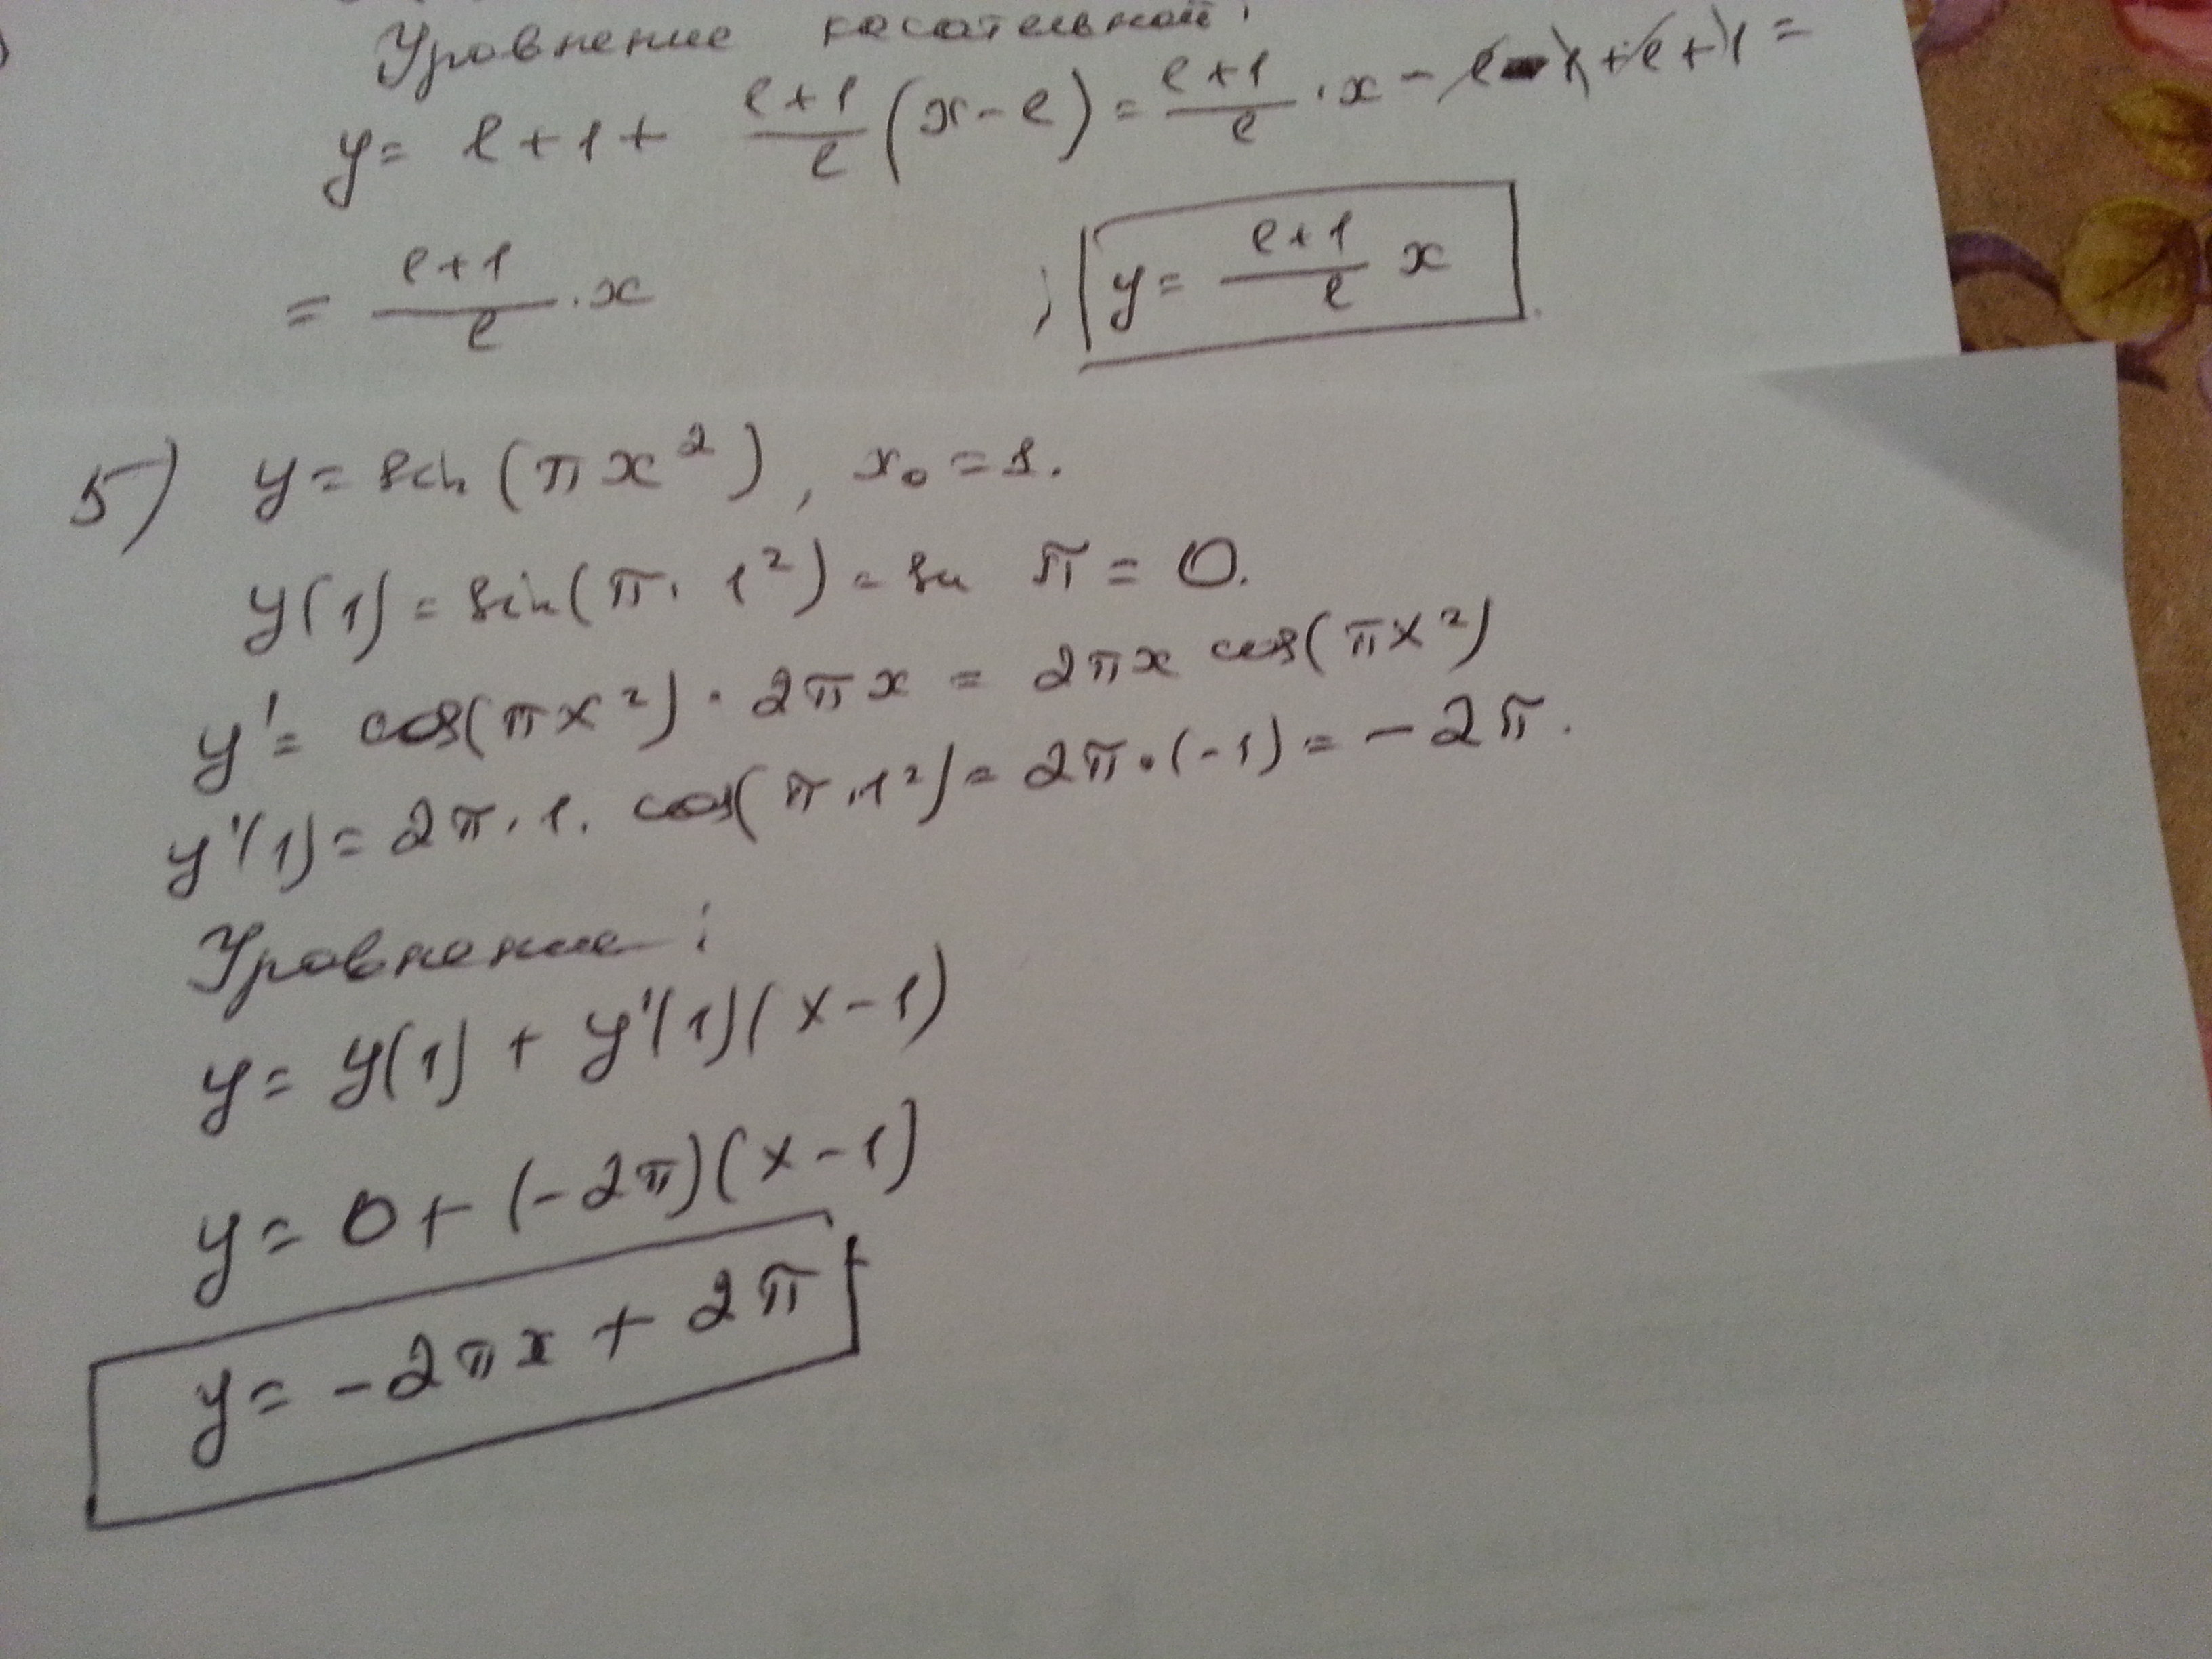 Уравнение касательной:
y = e + 1 + \frac{e+1}{e}(x - e) = \frac{e+1}{e} · x - e - 1 + e + 1 =
= \frac{e+1}{e} · x ; y = \frac{e+1}{e} x
5) y = sin(πx²), x₀ = 1.
y(1) = sin(π · 1²) = sin π = 0.
y' = cos(πx²) · 2πx = 2πx cos(πx²)
y'(1) = 2π · 1 · cos(π · 1²) = 2π · (-1) = -2π.
Уравнение:
y = y(1) + y'(1)(x - 1)
y = 0 + (-2π)(x - 1)
y = -2πx + 2π